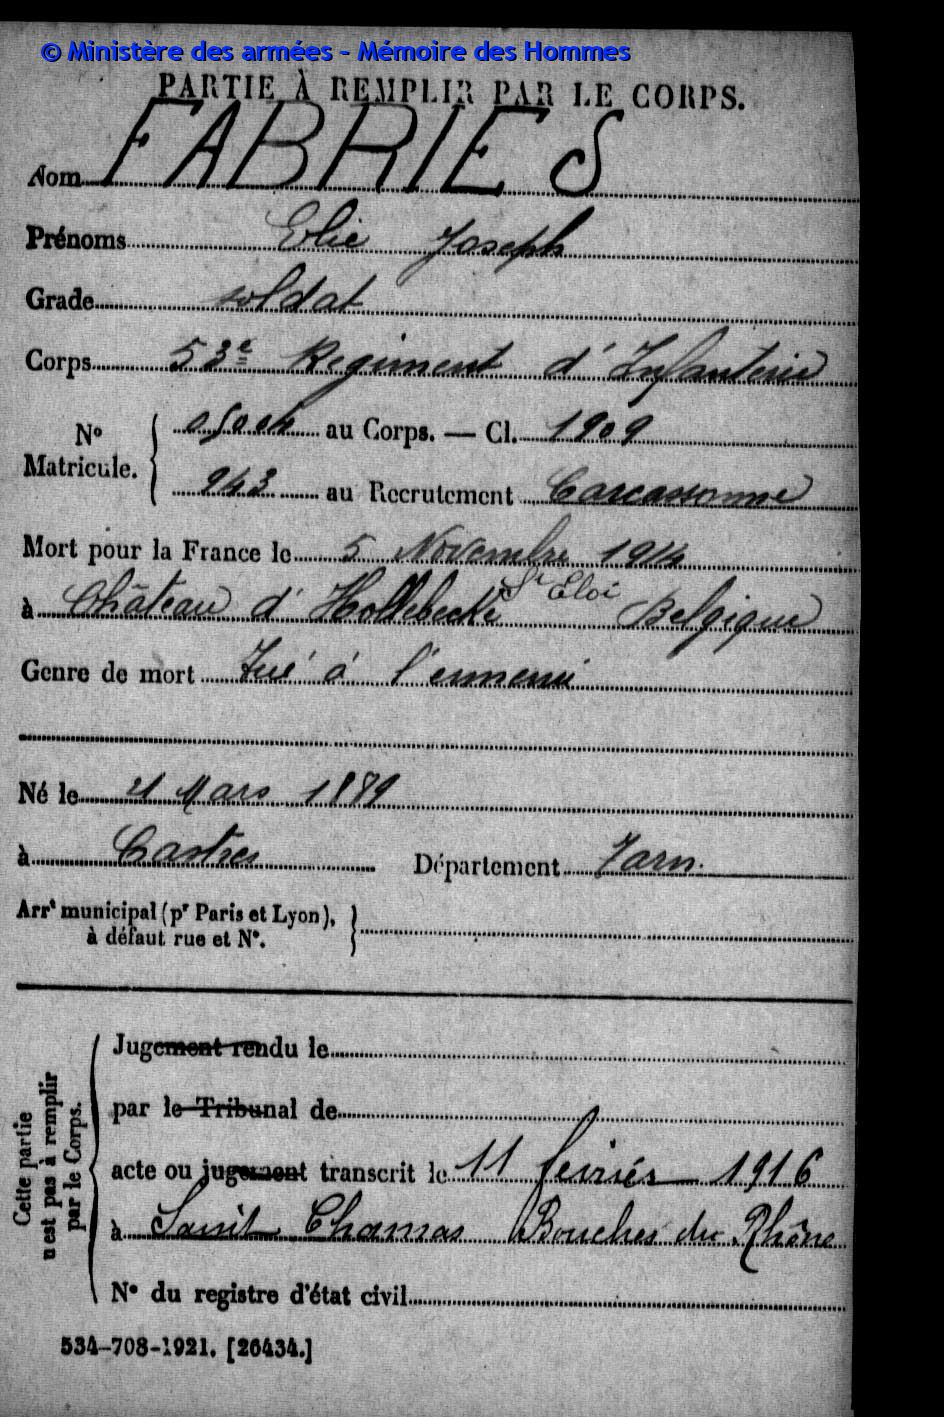 © Ministère des armées - Mémoire des Hommes
PARTIE À REMPLIR PAR LE CORPS.
Nom FABRIES
Prénoms Elie Joseph
Grade soldat
Corps 53e Regiment d'Infanterie
No Matricule. au Corps. — Cl. 1909
943 au Recrutement Carcassonne
Mort pour la France le 5 Novembre 1914
à Château d'Hollebecke St Eloi Belgique
Genre de mort Tué à l'ennemi
Né le 21 Mars 1889
à Castres Département Tarn.
Arrt municipal (pr Paris et Lyon),
à défaut rue et No.
Cette partie
n'est pas à remplir
par le Corps.
Jugement rendu le
par le Tribunal de
acte ou jugement transcrit le 11 février 1916
à Saint Chamas Bouches du Rhône
No du registre d'état civil
534-708-1921. [26434.]